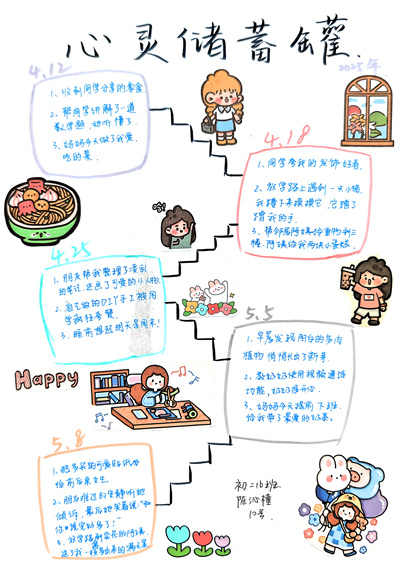 心灵储蓄罐.
2025年
4.12
1、收到同学分享的零食
2、帮同学讲解了一道
数学题,她听懂了.
3、妈妈今天做了我爱
吃的菜.
4.18
1、同学夸我的发饰好看.
2、放学路上遇到一只小猫,
我蹲下来摸摸它,它蹭了
蹭我的手.
3、帮邻居阿姨捡重物到三
楼,阿姨给我两块小蛋糕.
4.25
1、朋友帮我整理了凌乱
的笔记,还画了可爱的小人脸.
2、自己做的DIY手工被同
学疯狂夸赞.
3、睡前想起明天是周末!
5.5
1、早晨发现阳台的多肉
植物悄悄长出了新芽.
2、教奶奶使用视频通话
功能,奶奶很开心.
3、妈妈今天提前下班,
给我带了最爱的奶茶.
Happy
5.8
1、把多买的可爱贴纸分
给前后桌女生
2、朋友难过时安静听她
倾诉,最后她笑着说:"和
你聊完好多了!"
3、放学路到卖花的阿姨
送了我一枝
初二16班
陈沁橦
12号.